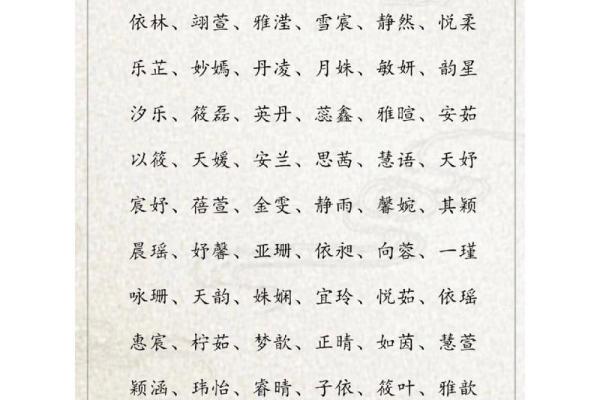 依林、翊萱、雅滢、雪宸、静然、悦柔
乐芷、妙嫣、丹凌、月姝、敏妍、韵星
汐乐、筱磊、英丹、蕊鑫、雅暄、安茹
以筱、天媛、安兰、思茜、慧语、天妤
宸妤、蓓萱、金雯、静雨、馨婉、其颖
晨瑶、妤馨、亚珊、依昶、向蓉、一瑾
咏珊、天韵、姝娴、宜玲、悦茹、依瑶
惠宸、柠茹、梦歆、正晴、如茵、慧萱
颖涵、玮怡、睿晴、子依、筱叶、雅歆